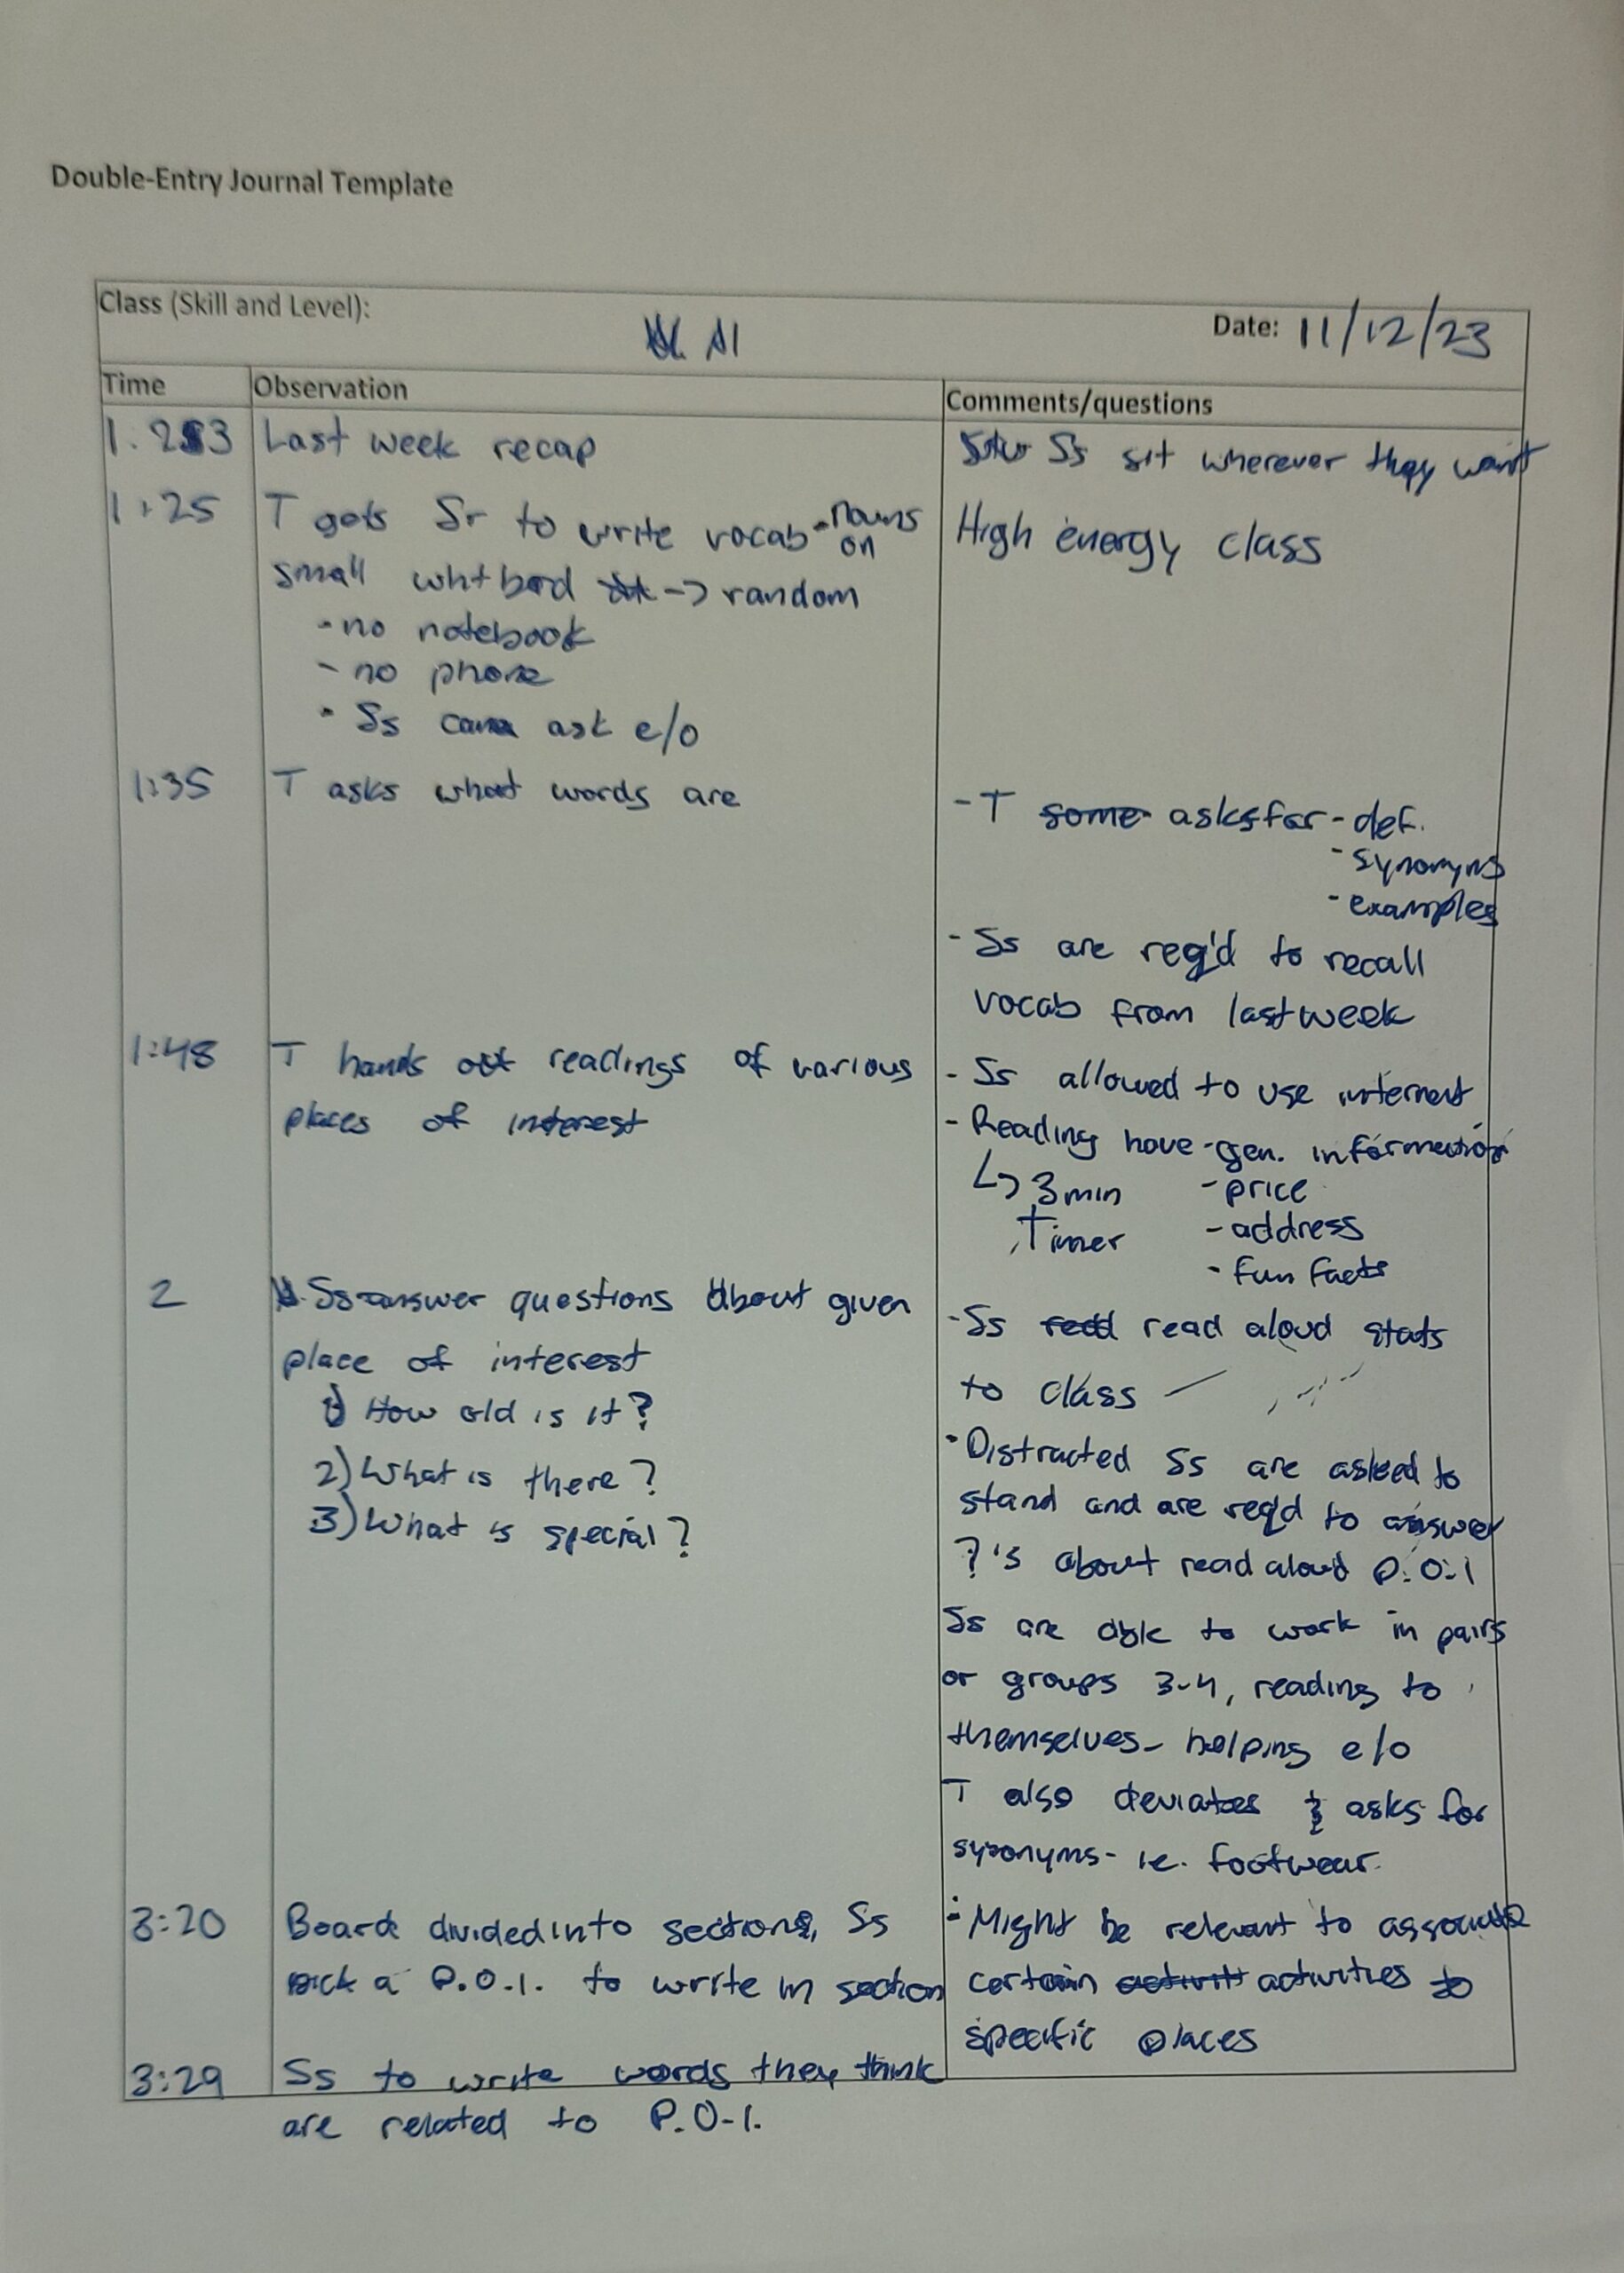 Double-Entry Journal Template
Class (Skill and Level): A1 Date: 11/12/23
Time Observation Comments/questions
1.23 Last week recap
Ss sit wherever they want
1:25 T gets Sr to write vocab - nouns
on
small whtbord -> random
- no notebook
- no phone
- Ss can ask e/o
High energy class
1:35 T asks what words are
- T some asks for - def.
- synonyms
- examples
- Ss are req'd to recall
vocab from last week
1:48 T hands out readings of various
places of interest
- Ss allowed to use internet
- Reading have - gen. information
↳ 3min - price
Timer - address
- fun facts
2 Ss answer questions about given
place of interest
1) How old is it?
2) What is there?
3) What is special?
- Ss read read aloud stats
to class
- Distracted Ss are asked to
stand and are req'd to answer
?'s about read aloud P.O.I
Ss are able to work in pairs
or groups 3-4, reading to
themselves - helping e/o
T also deviates & asks for
synonyms - ie. footwear.
3:20 Board divided into sections, Ss
pick a P.O.I. to write in section
- Might be relevant to associate
certain activiti activities to
specific places
3:29 Ss to write words they think
are related to P.O.I.